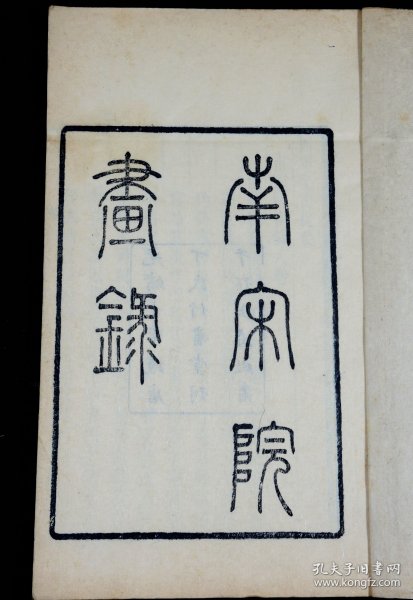 南宋院
畫錄
孔夫子旧书网
www.kongfz.com